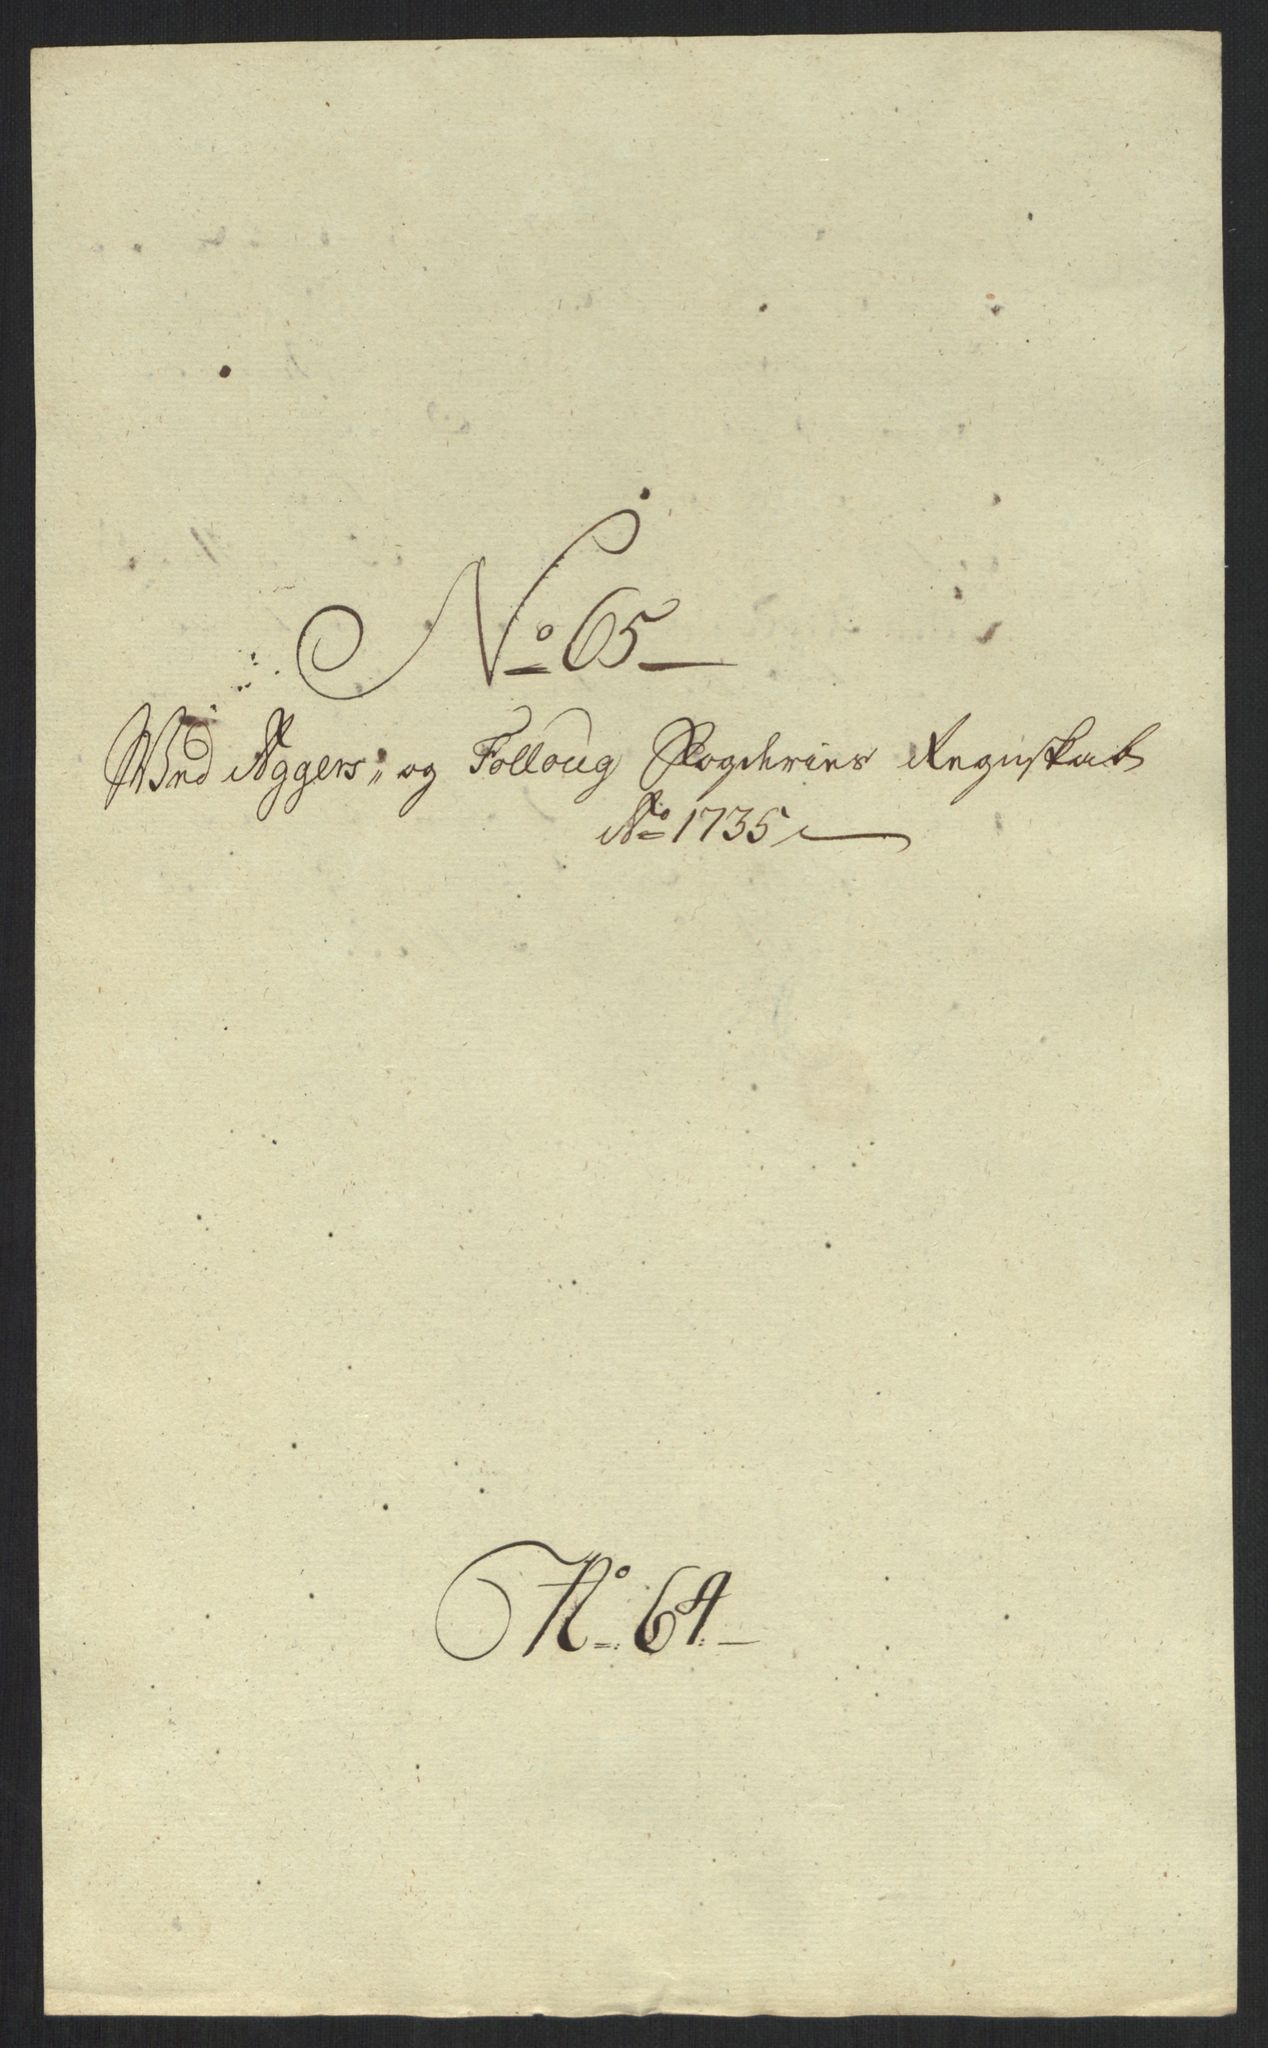 No 65
Wed Aggers- og Folloug Fogderies Regnskab
Ao 1735
No 64